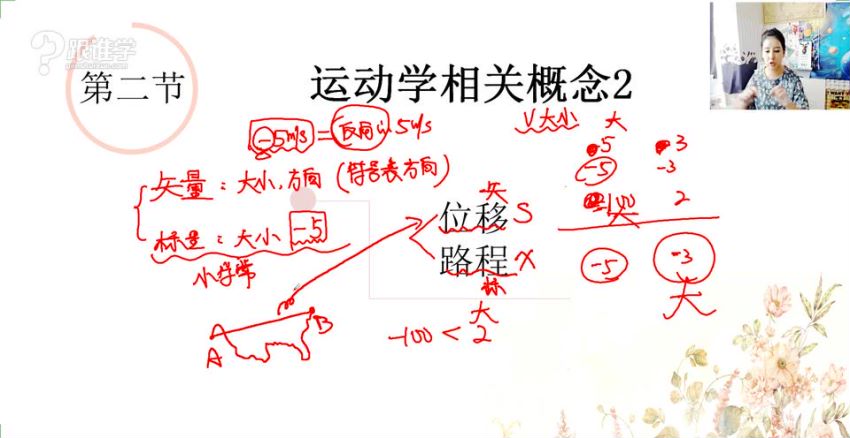 跟谁学
genshuixue.com
第二节
运动学相关概念2
-5m/s = 反向以5m/s
V大小 大
5 3
-5 -3
-100 2
大
-5 -3
大
矢量：大小，方向（符号表方向）
标量：大小 -5
小学常
矢
位移 S
路程 X
标
A B
大
-100 < 2